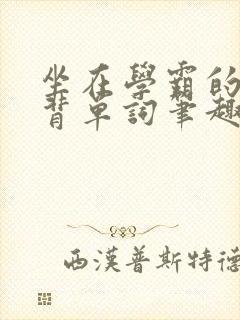 坐在學霸的
背單詞筆趣
西漢普斯特德